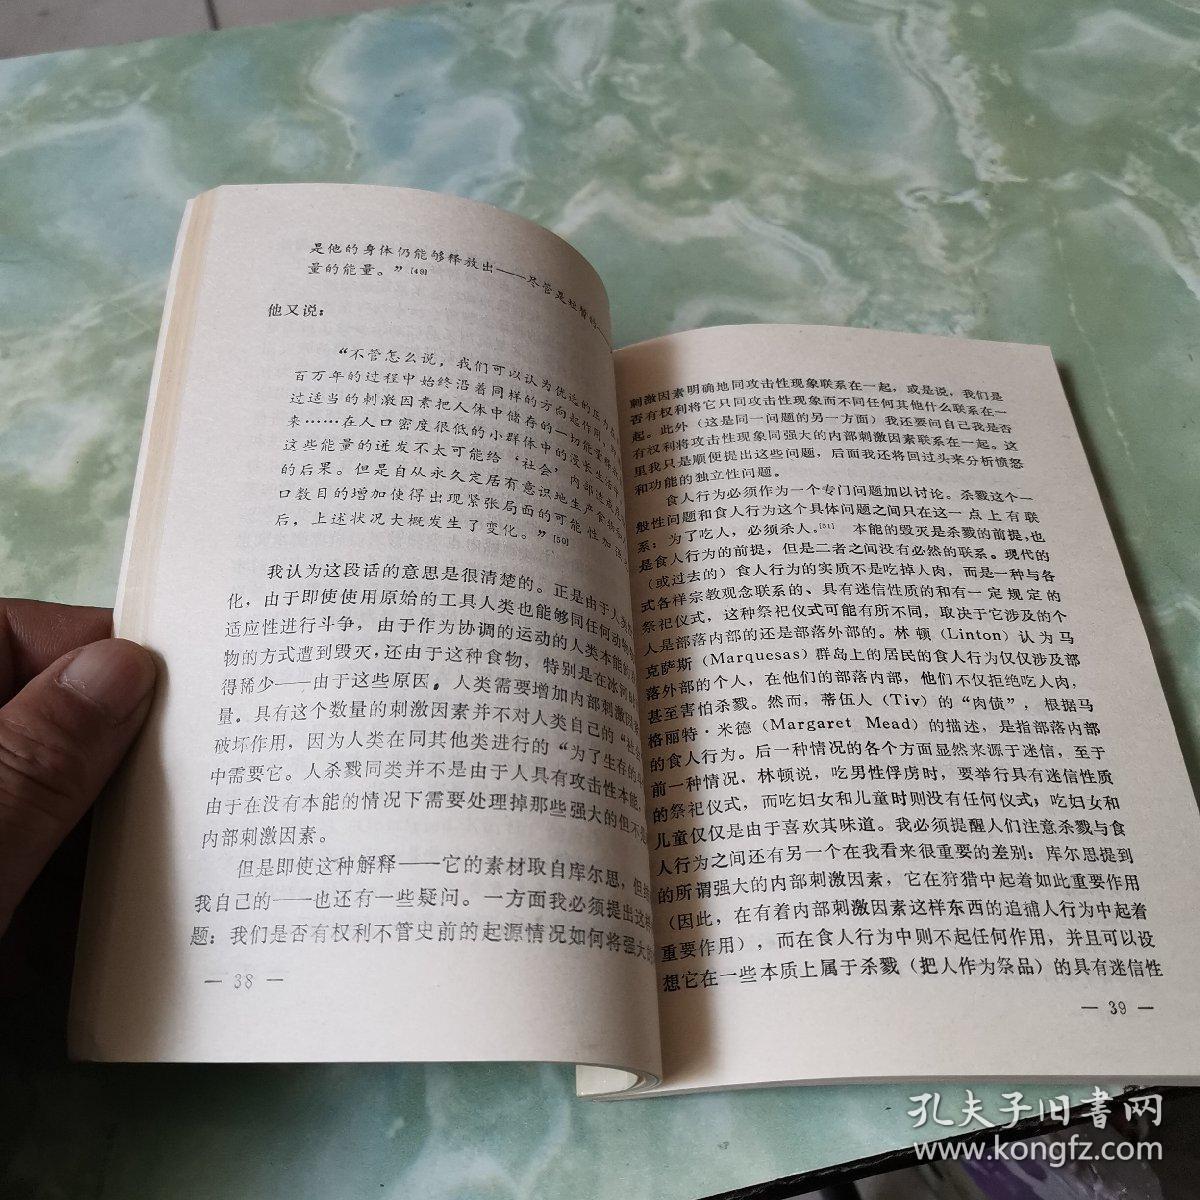 是他的身体仍能够释放出——尽管是短暂的——
量的能量。”[49]
他又说：
“不管怎么说，我们可以认为优选的压力在
百万年的过程中始终沿着同样的方向起作用，
过适当的刺激因素把人体中储存的一切能量释放
来……在人口密度很低的小群体中的漫长生活中
这些能量的迸发不太可能给‘社会’内部造成
的后果。但是自从永久定居有意识地生产食物
口数目的增加使得出现紧张局面的可能性加
后，上述状况大概发生了变化。”[50]
我认为这段话的意思是很清楚的。正是由于人类
化，由于即使使用原始的工具人类也能够同任何动物
适应性进行斗争，由于作为协调的运动的人类本能的
物的方式遭到毁灭，还由于这种食物，特别是在冰河
得稀少——由于这些原因，人类需要增加内部刺激因
量。具有这个数量的刺激因素并不对人类自己的“社会
破坏作用，因为人类在同其他类进行的“为了生存的
中需要它。人杀戮同类并不是由于人具有攻击性本能，
由于在没有本能的情况下需要处理掉那些强大的但不
内部刺激因素。
但是即使这种解释——它的素材取自库尔思，但
我自己的——也还有一些疑问。一方面我必须提出这样
题：我们是否有权利不管史前的起源情况如何将强大的
— 38 —
刺激因素明确地同攻击性现象联系在一起，或是说，我们是
否有权利将它只同攻击性现象而不同任何其他什么联系在一
起。此外（这是同一问题的另一方面）我还要问自己我是否
有权利将攻击性现象同强大的内部刺激因素联系在一起。这
里我只是顺便提出这些问题，后面我还将回过头来分析愤怒
和功能的独立性问题。
食人行为必须作为一个专门问题加以讨论。杀戮这个一
般性问题和食人行为这个具体问题之间只在这一点上有联
系：为了吃人，必须杀人。[51] 本能的毁灭是杀戮的前提，也
是食人行为的前提，但是二者之间没有必然的联系。现代的
（或过去的）食人行为的实质不是吃掉人肉，而是一种与各
式各样宗教观念联系的、具有迷信性质的和有一定规定的
祭祀仪式，这种祭祀仪式可能有所不同，取决于它涉及的个
人是部落内部的还是部落外部的。林顿（Linton）认为马
克萨斯（Marquesas）群岛上的居民的食人行为仅仅涉及部
落外部的个人，在他们的部落内部，他们不仅拒绝吃人肉，
甚至害怕杀戮。然而，蒂伍人（Tiv）的“肉债”，根据马
格丽特·米德（Margaret Mead）的描述，是指部落内部
的食人行为。后一种情况的各个方面显然来源于迷信，至于
前一种情况，林顿说，吃男性俘虏时，要举行具有迷信性质
的祭祀仪式，而吃妇女和儿童时则没有任何仪式；吃妇女和
儿童仅仅是由于喜欢其味道。我必须提醒人们注意杀戮与食
人行为之间还有另一个在我看来很重要的差别：库尔思提到
的所谓强大的内部刺激因素，它在狩猎中起着如此重要作用
（因此，在有着内部刺激因素这样东西的追捕人行为中起着
重要作用），而在食人行为中则不起任何作用，并且可以设
想它在一些本质上属于杀戮（把人作为祭品）的具有迷信性
— 39 —
孔夫子旧书网
www.kongfz.com